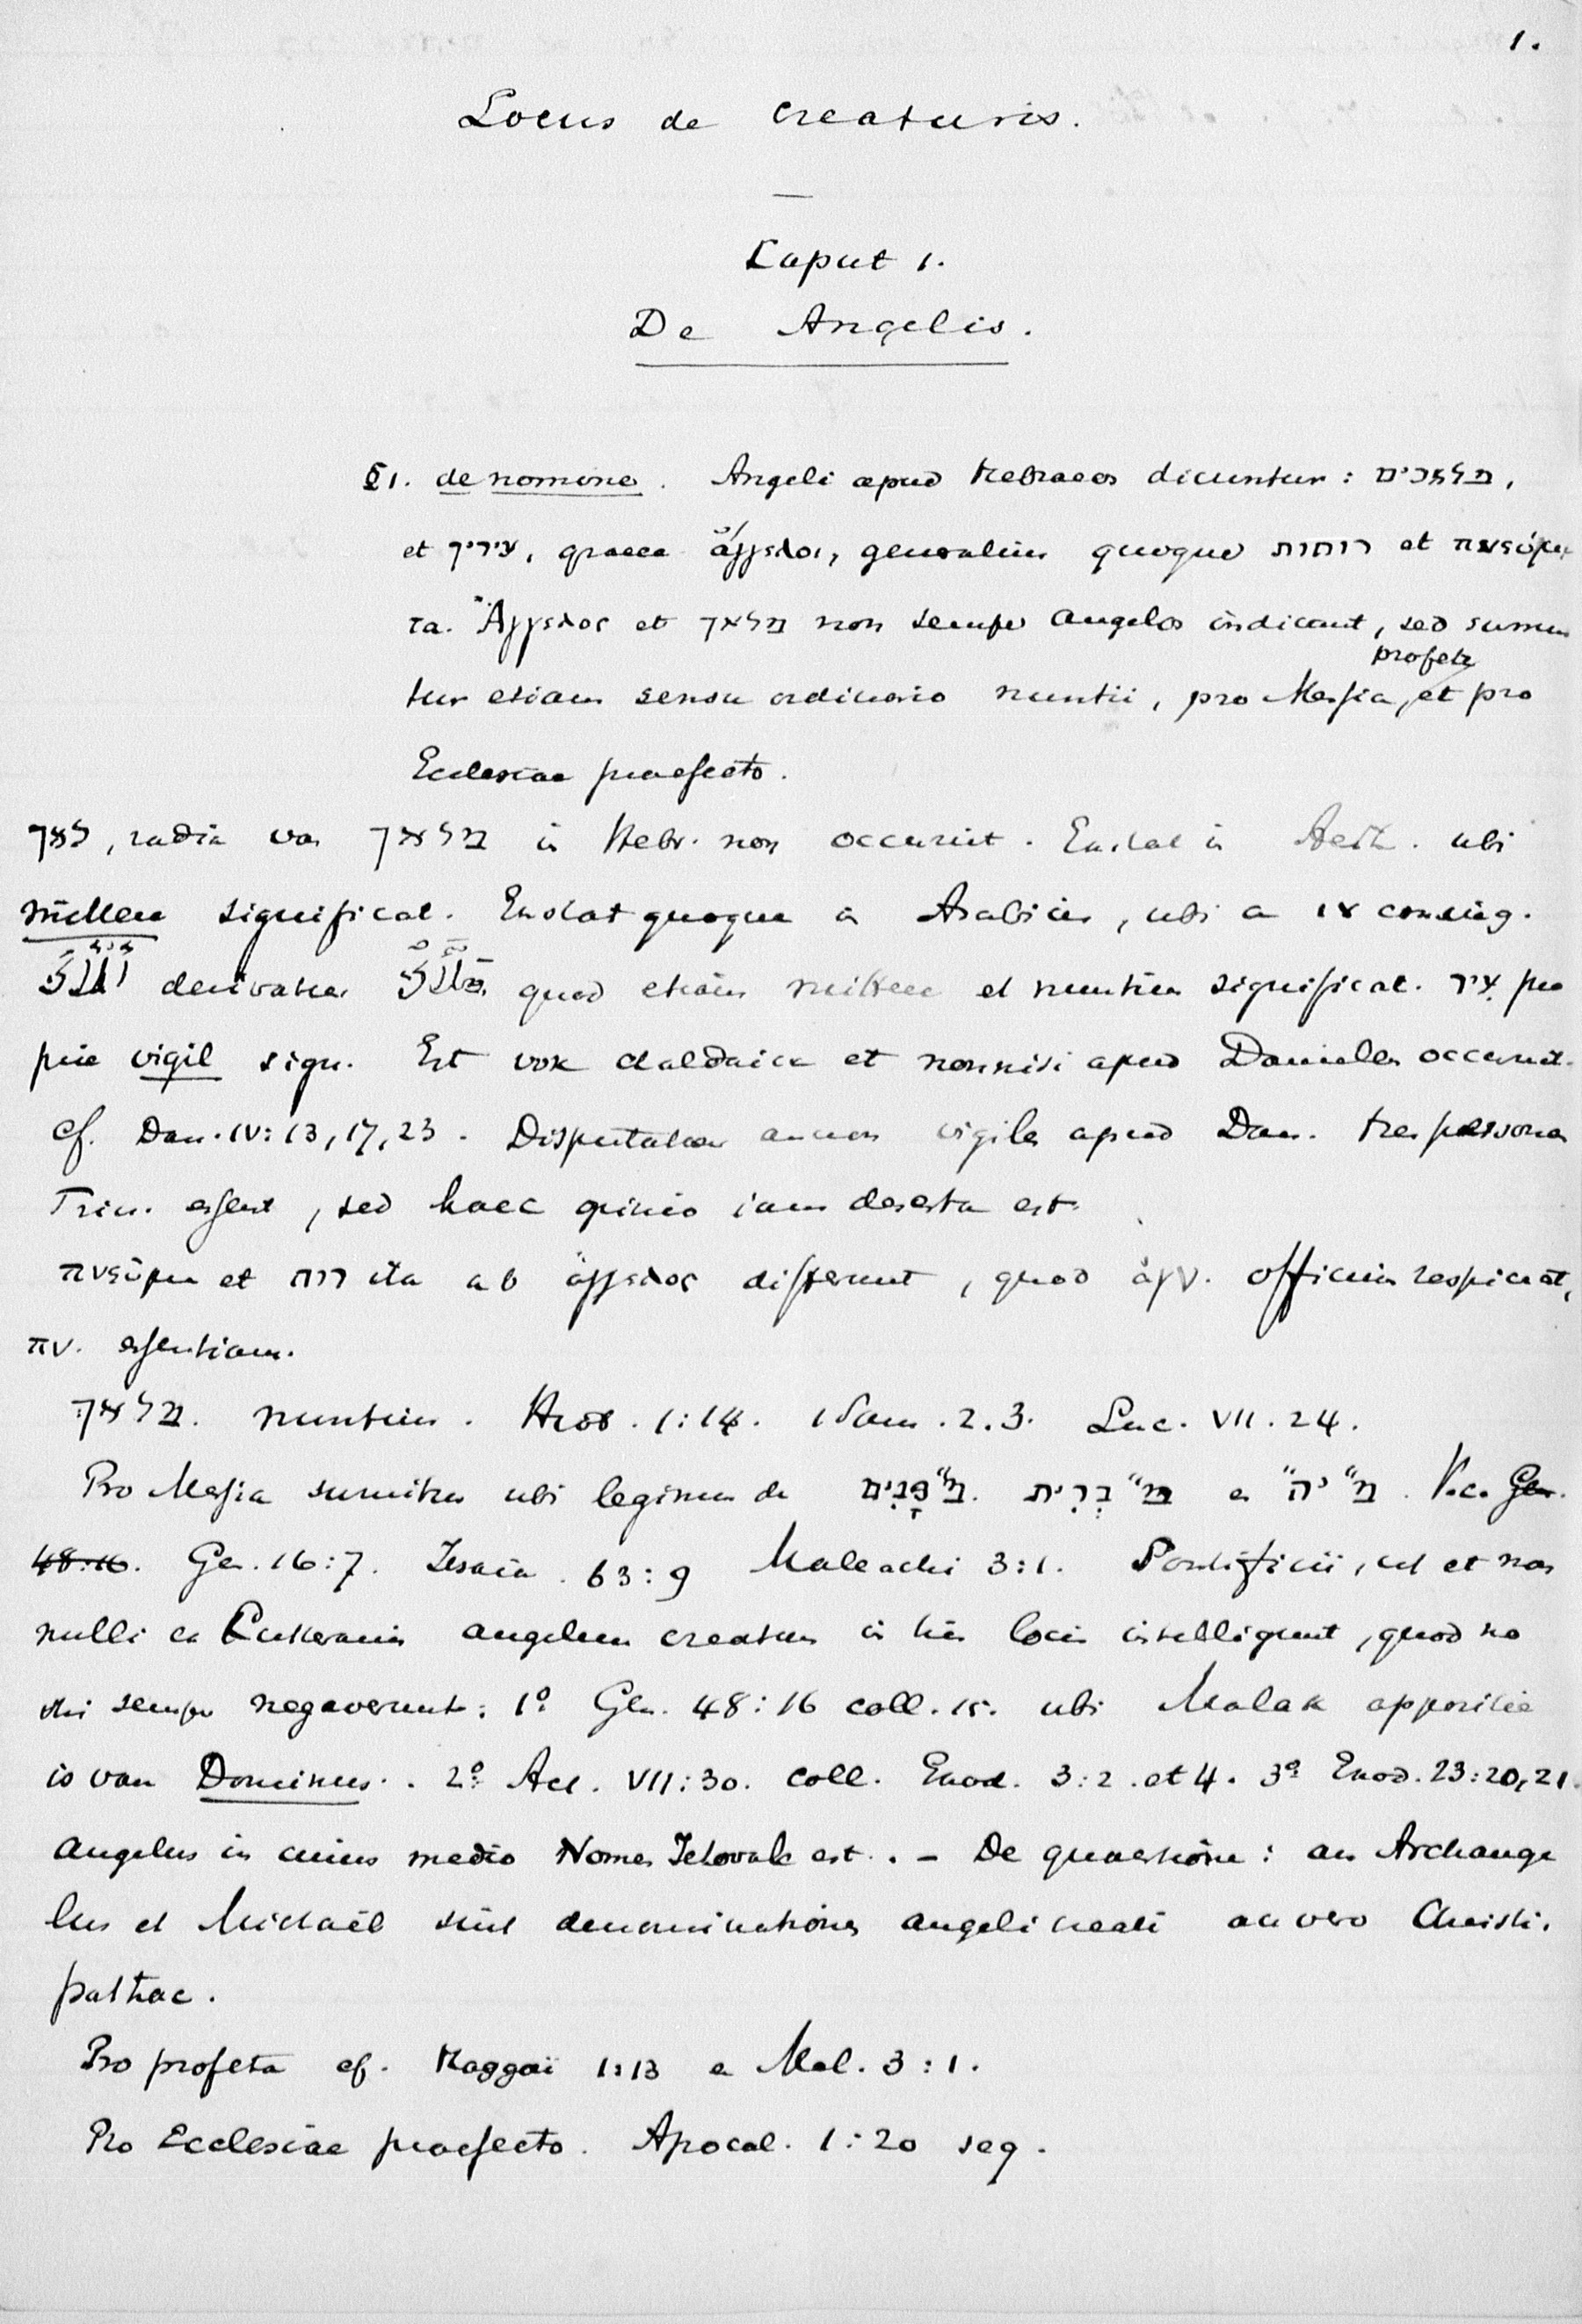 1.
Locus de creaturis.
Caput 1.
De Angelis.
§1. de nomine. Angeli apud Hebraeos dicuntur: מלאכים,
et עירין, graece ἄγγελοι, generalius quoque רוחות et πνεύμα
τα. Ἄγγελος et מלאך non semper angelos indicant, sed sumun
profeta
tur etiam sensu ordinario nuntii, pro Messia, et pro
Ecclesiae praefecto.
לאך, radix vocis מלאך in Hebr. non occurrit. Exstat in Aeth. ubi
mittere significat. Exstat quoque in Arabicis, ubi a IV conjug.
derivatur quod etiam mittere et nuntium significat. עיר pro
prie vigil sign. Est vox chaldaica et nonnisi apud Danielem occurrit.
cf. Dan. IV: 13, 17, 23. Disputatum annon vigiles apud Dan. tres personae
Trin. essent, sed haec opinio iam deserta est.
πνεῦμα et רוח ita ab ἄγγελος differunt, quod ἄγγ. officium respiciat,
πν. essentiam.
מלאך. nuntius. Hiob. 1:14. 1 Sam. 2.3. Luc. VII. 24.
Pro Messia sumitur ubi legimus de מ״פנים. מ״ברית et מ״יה״. V.c. Gen.
48:16. Gen. 16:7. Jesaia. 63:9 Maleachi 3:1. Pontificii, ut et non
nulli ex Lutheranis angelum creatum in his locis intelligunt, quod no
stri semper negaverunt: 1º Gen. 48:16 coll. 15. ubi Malak appositie
is van Dominus. 2º Act. VII:30. coll. Exod. 3:2. et 4. 3º Exod. 23:20, 21.
Angelus in cuius medio Nomen Jehovah est. – De quaestione: an Archange
lus et Michaël sint denominationes angeli creati an vero Christi.
posthac.
Pro profeta cf. Haggaï 1:13 et Mal. 3:1.
Pro Ecclesiae praefecto. Apocal. 1:20 seq.